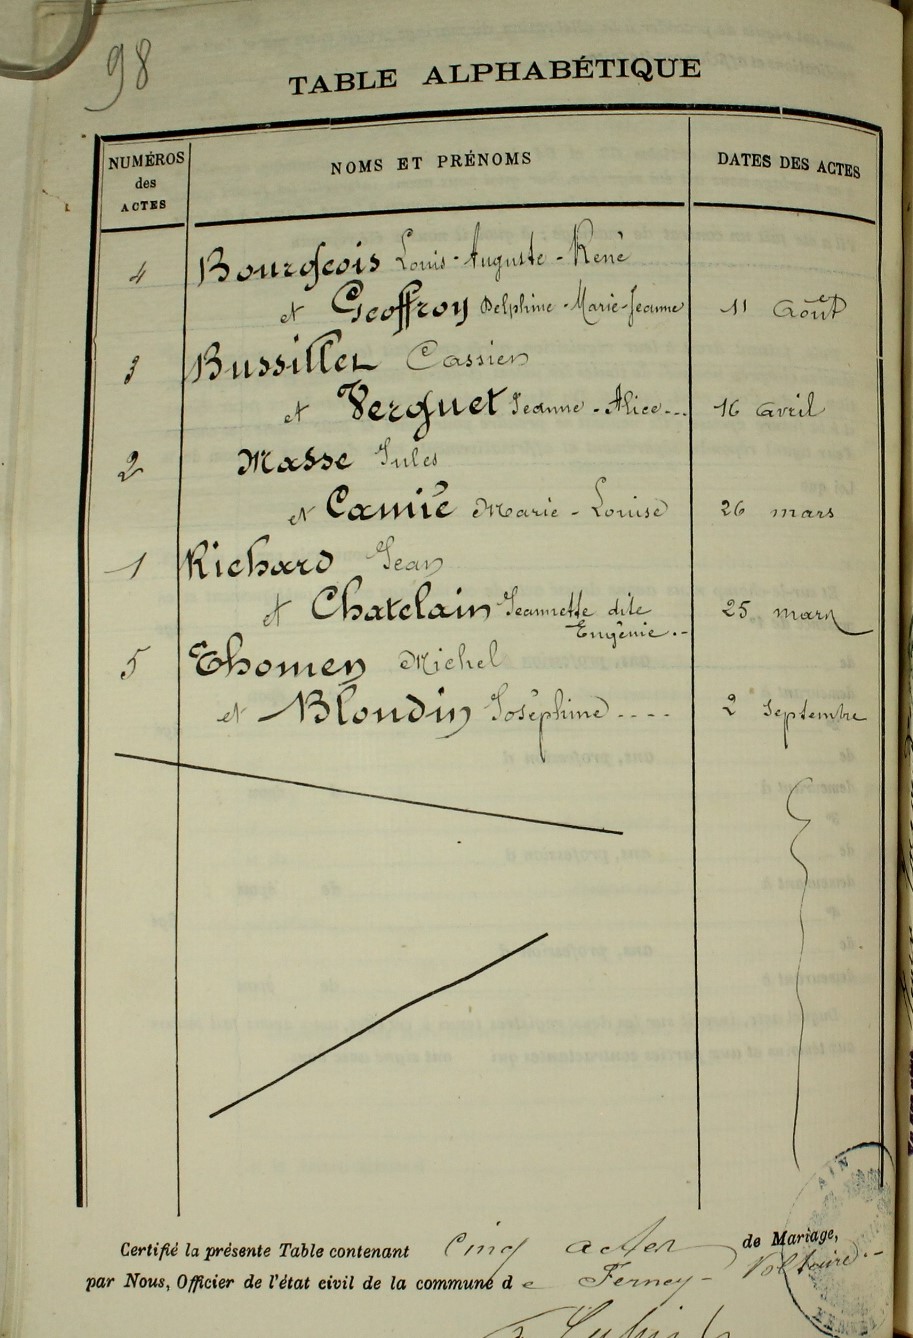 98
TABLE ALPHABÉTIQUE
NUMÉROS des ACTES
NOMS ET PRÉNOMS
DATES DES ACTES
4 Bourgeois Louis-Auguste-René
et Geoffroy Delphine-Marie-Jeanne 11 août
3 Bussillet Cassien
et Verguet Jeanne-Alice... 16 avril
2 Masse Jules
et Camié Marie-Louise 26 mars
1 Richard Jean
et Chatelain Jeannette dite 25 mars
Eugénie.-
5 Thomen Michel
et Blondin Joséphine.... 2 Septembre
Certifié la présente Table contenant cinq actes de Mariage,
par Nous, Officier de l'état civil de la commune de Ferney-Voltaire.-
AIN